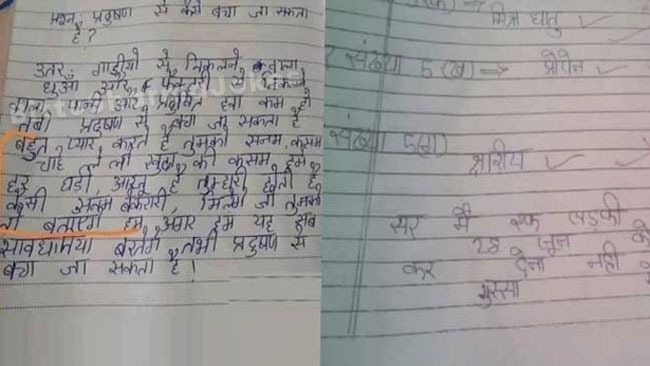 प्रश्न, प्रदुषण से कैसे बचा जा सकता
है?
उतर गाड़ीयो से निकलने वाला
धुआँ और फैक्टरी से निकलने
वाला पानी और प्रदुषित हवा कम हो
तभी प्रदुषण से बचा जा सकता है
बहुत प्यार करते हैं तुमको सनम, कसम
चाहे ले लो खुदा की कसम, हमे
हर घड़ी, आरजू है तुम्हारी होती है
कैसी सनम बेकरारी, मिलेगें जो तुमको
तो बताएगें हम, अगर हम यह सब
सावधानिया बरतेगे तभी प्रदुषण से
बचा जा सकता है।
मिश्र धातु
संख्या 5(ख) → प्रोपेन
संख्या 5(ग)
क्षारीय
सर मै एक लड़की
28 जून को
कर देना नही
गुस्सा